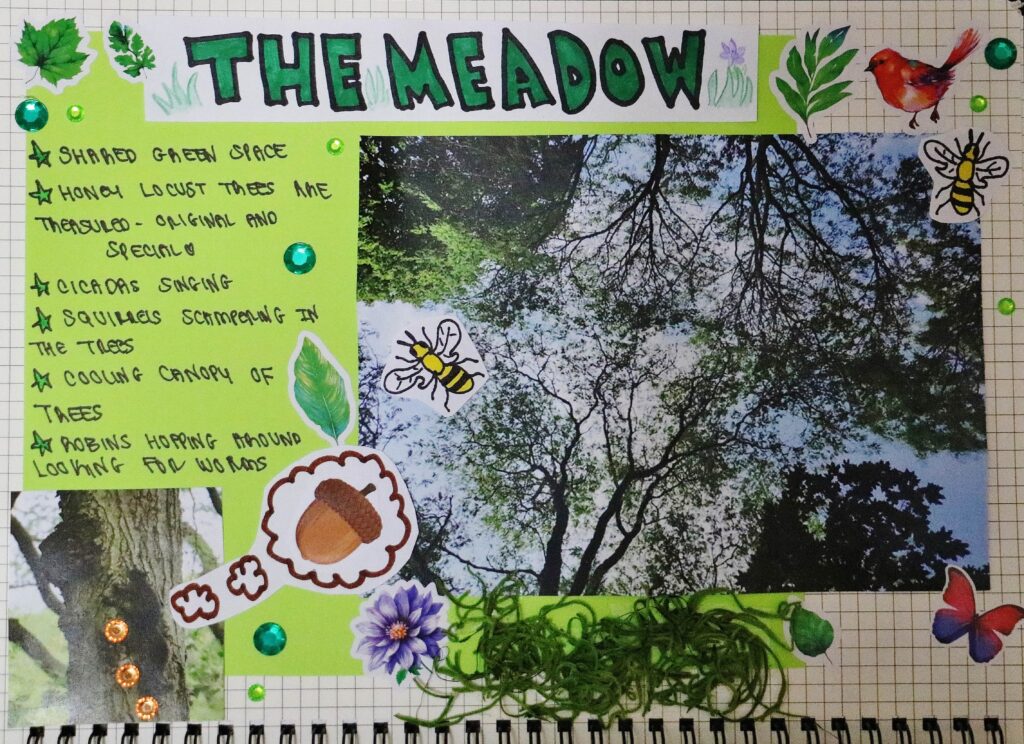 THE MEADOW
SHARED GREEN SPACE
HONEY LOCUST TREES ARE
TREASURED - ORIGINAL AND
SPECIAL
CICADAS SINGING
SQUIRRELS SCAMPERING IN
THE TREES
COOLING CANOPY OF
TREES
ROBINS HOPPING AROUND
LOOKING FOR WORMS